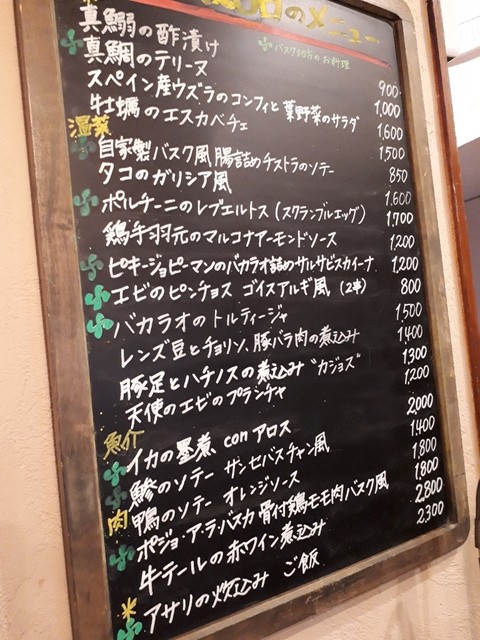 のメニュー
バスク地方のお料理
真鰯の酢漬け
真鯛のテリーヌ 900
スペイン産ウズラのコンフィと葉野菜のサラダ 1,000
牡蠣のエスカベチェ 1,600
温菜
自家製バスク風腸詰めチストラのソテー 1,500
タコのガリシア風 850
ポルチーニのレブエルトス(スクランブルエッグ) 1,600
鶏手羽元のマルコナアーモンドソース 1,700
ピキージョピーマンのバカラオ詰めサルサビスカイーナ 1,200
エビのピンチョス ゴイスアルギ風 (2串) 1,200
バカラオのトルティージャ 800
レンズ豆とチョリソ、豚バラ肉の煮込み 1,500
豚足とハチノスの煮込み "カジョス" 1,400
天使のエビのプランチャ 1300
1,200
魚介
イカの墨煮 con アロス 2,000
鯵のソテー サンセバスチャン風 1,400
肉
鴨のソテー オレンジソース 1,800
ポジョ・ア・ラ・バスカ 骨付鶏モモ肉バスク風 1,800
牛テールの赤ワイン煮込み 2,800
アサリの炊込み ご飯 2,300